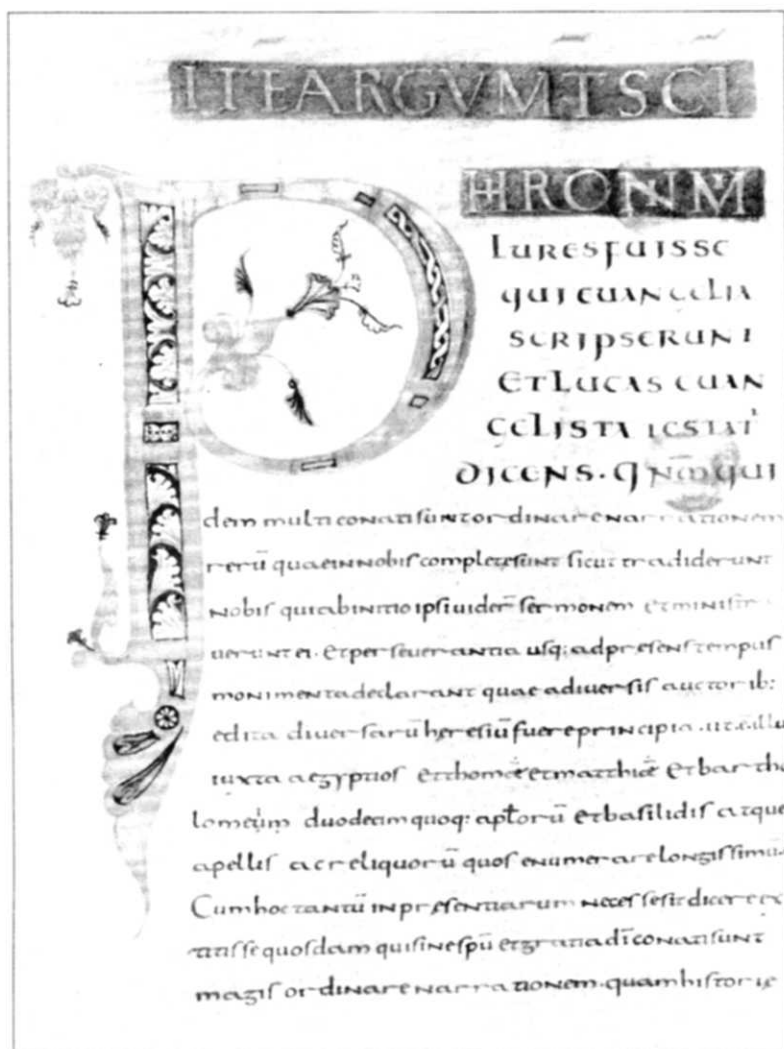 ITE ARGUMT SCI
HIERONIMI
PLURES FUISSE
QUI EUANGELIA
SCRIPSERUNT
ET LUCAS EUAN
GELISTA TESTAT
DICENS · Qnm̄ QUI
dem multi conati sunt ordinare narrationem
rerū quae in nobis completę sunt sicut tradiderunt
nobis qui ab initio ipsi uider̄ sermonem et ministra
uerunt ei · Et perseuerantia usq; ad presens tempus
monimenta declarant quae a diuersis auctorib:
edita diuersarū heresiū fuere principia · ut ē illu
iuxta aegyptios et thomā et matthiā et bartho
lomeum duodecim quoq: apłorū et basilidis atque
apellis ac reliquorū quos enumerare longissimū
Cum hoc tantū in presentiarum necesse sit dicere ex
titisse quosdam qui sine spū et gratia dī conati sunt
magis ordinare narrationem · quam historię